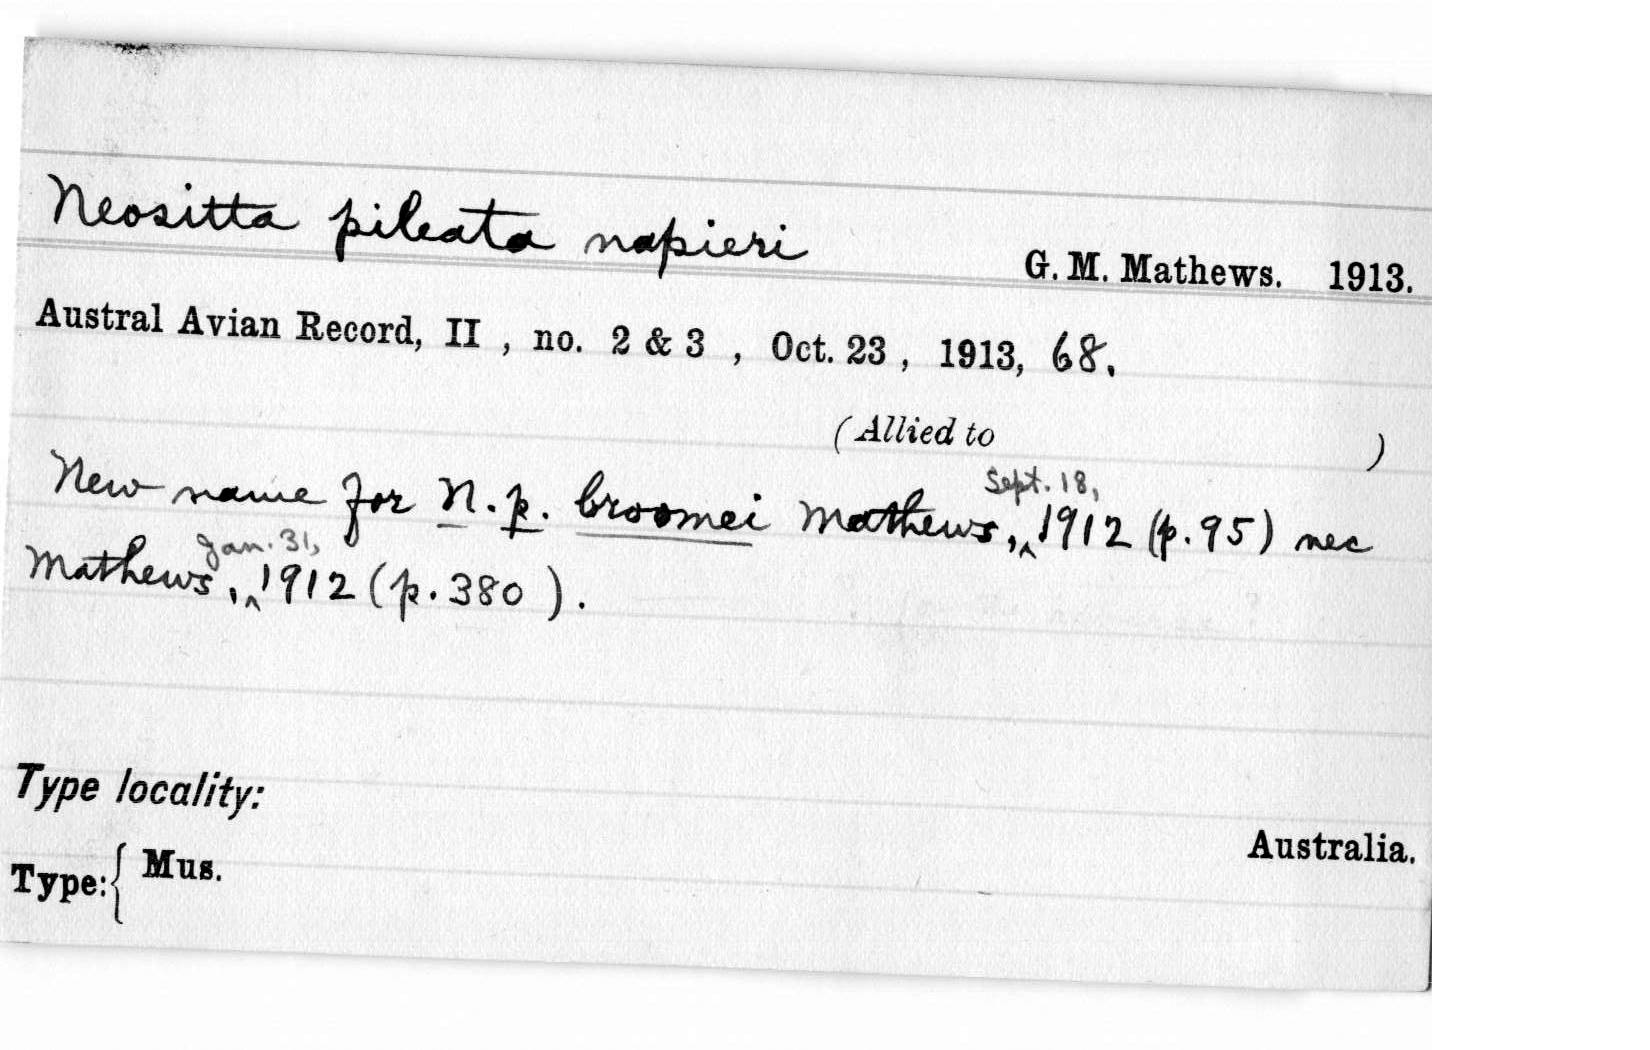 Neositta pileata napieri G. M. Mathews. 1913.
Austral Avian Record, II , no. 2 & 3 , Oct. 23 , 1913, 68.
(Allied to )
New name for N. p. broomei Mathews, ^ Sept. 18, 1912 (p. 95) nec
Mathews, ^ Jan. 31, 1912 (p. 380 ).
Type locality:
Australia.
Type: { Mus.